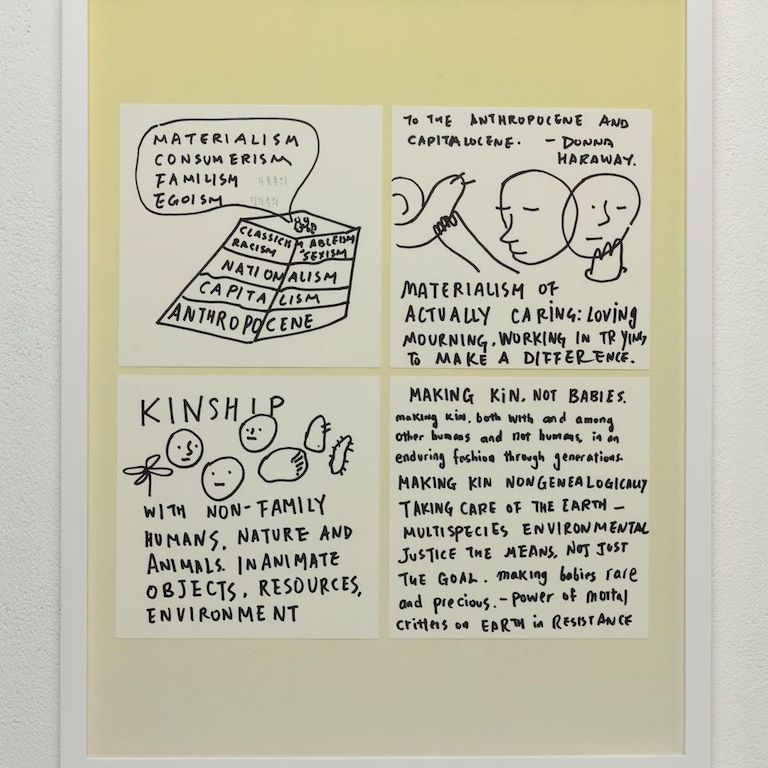 MATERIALISM
CONSUMERISM
FAMILISM 가족주의
EGOISM 이기주의
CLASSICISM ABLEISM
RACISM SEXISM
NATIONALISM
CAPITALISM
ANTHROPOCENE
TO THE ANTHROPOCENE AND
CAPITALOCENE. - DONNA
HARAWAY.
MATERIALISM OF
ACTUALLY CARING: LOVING
MOURNING, WORKING IN TRYING
TO MAKE A DIFFERENCE.
KINSHIP
WITH NON-FAMILY
HUMANS, NATURE AND
ANIMALS. INANIMATE
OBJECTS, RESOURCES,
ENVIRONMENT
MAKING KIN, NOT BABIES.
making kin, both with and among
other humans and not humans, in an
enduring fashion through generations.
MAKING KIN NONGENEALOGICALLY
TAKING CARE OF THE EARTH –
MULTISPECIES ENVIRONMENTAL
JUSTICE THE MEANS, NOT JUST
THE GOAL. making babies rare
and precious. – Power of mortal
critters on EARTH in RESISTANCE